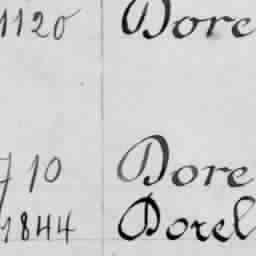 1120 Dore
710 Dore
1844 Dorel